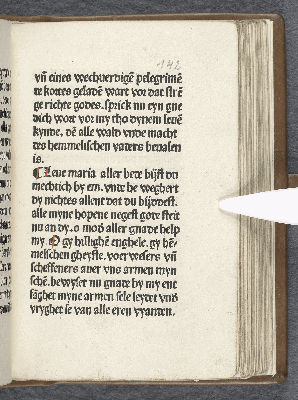 142
vn̄ eines wechverdigē pelegrimē
te kortes geladē wart vor dat strē
ge richte godes. sprick nu eyn gue
dich wort vor my tho dynem leuē
kynde. dē alle wald vnde macht
des hemmelischen vaters beualen
is.
Leue maria aller bede bistu
mechtich by em. vnde he weghert
dy nichtes allent dat du biddest.
alle myne hopene negest gode steit
nu an dy. o mod aller gnade help
my. O gy hillighē enghele. gy hē⸗
melschen gheyste. voer wesers vn̄
scheffeners auer vns armen myn
schē. bewyset nu gnade by my ent
fāghet myne armen sele leydet vnd
vryghet se van alle eren vyanten.